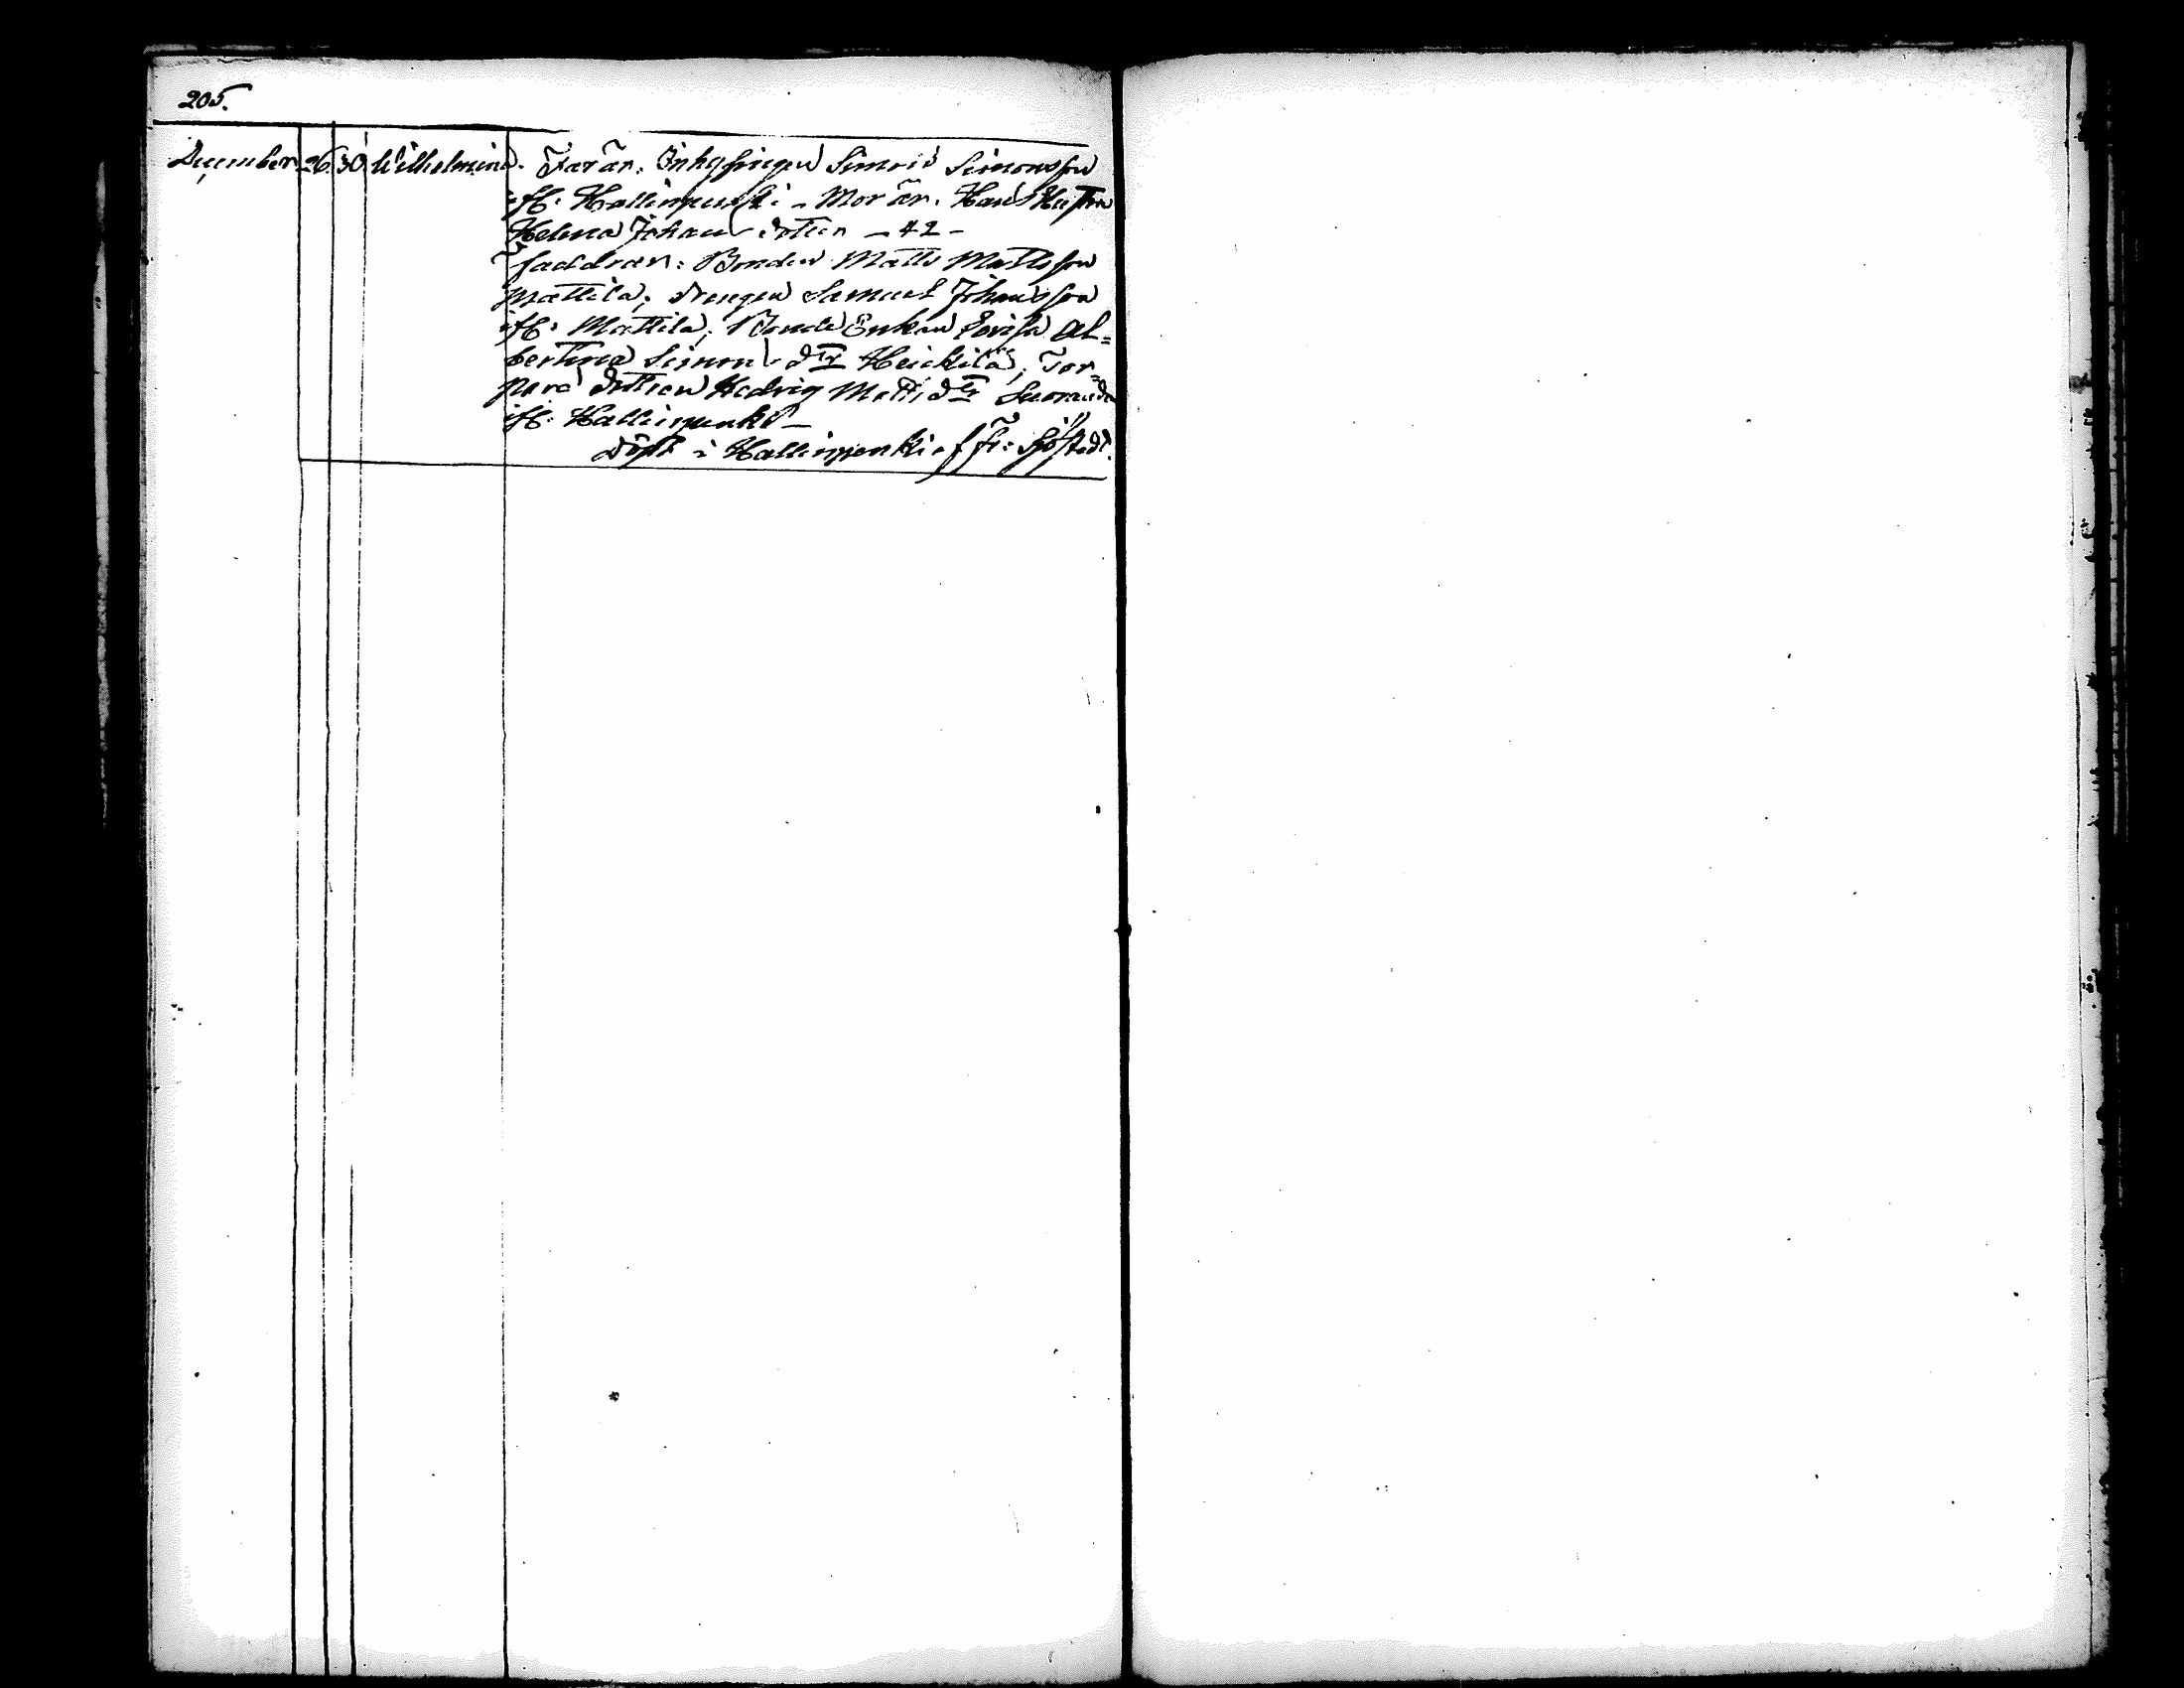 205.
December 26. 30 Wilhelmina. Far är: Inhysingen Simon Simonsson
if H. Hallinpenki - Mor är: Hans Hustru
Helena Johans dotter - 42 -
Faddrar: Bonden Matts Mattsson
Mattila; Drengen Samuel Johansson
if Mattila; Bonde Enkan Lovisa Al=
bertina Simons dr Heickilä; Tor=
pare dottren Hedvig Matts dr
if Hallinpenki -
döpt i Hallinpenki af Fr: Sjöstedt.